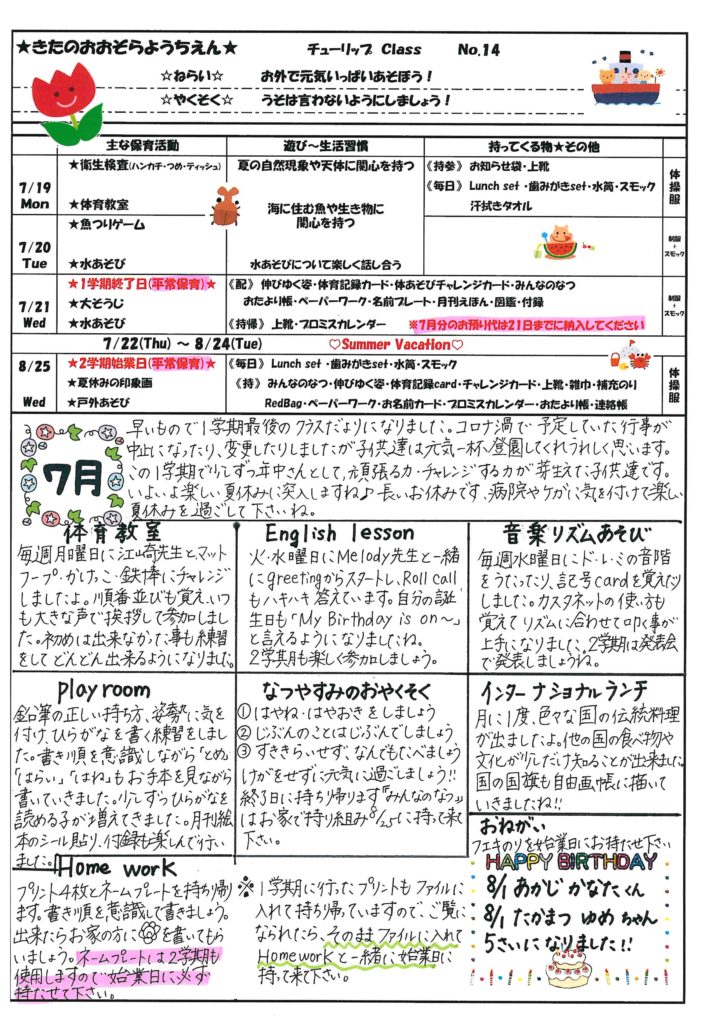 ★きたのおおぞらようちえん★ チューリップ Class No.14
☆ねらい☆ お外で元気いっぱいあそぼう！
☆やくそく☆ うそは言わないようにしましょう！
主な保育活動 遊び～生活習慣 持ってくる物★その他
7/19 Mon
★衛生検査(ハンカチ・つめ・ティッシュ)
★体育教室
夏の自然現象や天体に関心を持つ
海に住む魚や生き物に
関心を持つ
《持参》 お知らせ袋・上靴
《毎日》 Lunch set ・歯みがきset・水筒・スモック
汗拭きタオル
体操服
7/20 Tue
★魚つりゲーム
★水あそび
水あそびについて楽しく話し合う
制服+スモック
7/21 Wed
★1学期終了日(平常保育)★
★大そうじ
★水あそび
《配》 伸びゆく姿・体育記録カード・体あそびチャレンジカード・みんなのなつ
おたより帳・ペーパーワーク・名前プレート・月刊えほん・図鑑・付録
《持帰》 上靴・プロミスカレンダー ※7月分のお預り代は21日までに納入してください
制服+スモック
7/22(Thu) ～ 8/24(Tue) ♡Summer Vacation♡
8/25 Wed
★2学期始業日(平常保育)★
★夏休みの印象画
★戸外あそび
《毎日》 Lunch set ・歯みがきset・水筒・スモック
《持》 みんなのなつ・伸びゆく姿・体育記録card・チャレンジカード・上靴・雑巾・補充のり
RedBag・ペーパーワーク・お名前カード・プロミスカレンダー・おたより帳・連絡帳
体操服
7月
早いもので1学期最後のクラスだよりになりました。コロナ渦で予定していた行事が
中止になったり、変更したりしましたが子供達は元気一杯登園してくれうれしく思います。
この1学期で少しずつ年中さんとして、頑張る力・チャレンジする力が芽生えた子供達です。
いよいよ楽しい夏休みに突入しますね♪長いお休みです、病院やケガに気を付けて楽しい
夏休みを過ごして下さいね。
体育教室
毎週月曜日に江崎先生とマット
フープ・かけっこ・鉄棒にチャレンジ
しましたよ。順番並びも覚え、いつ
も大きな声で挨拶して参加しまし
た。初めは出来なかった事も練習
をしてどんどん出来るようになりました。
English lesson
火・水曜日にMelody先生と一緒
にgreetingからスタートし、Roll call
もハキハキ答えています。自分の誕
生日も「My Birthday is on～」
と言えるようになりましたね。
2学期も楽しく参加しましょう。
音楽リズムあそび
毎週水曜日にド・レ・ミの音階
をうたったり、記号cardを覚えたり
しました。カスタネットの使い方も
覚えてリズムに合わせて叩く事が
上手になりました。2学期は発表会
で発表しましょうね。
Playroom
鉛筆の正しい持ち方、姿勢に気を
付け、ひらがなを書く練習をしまし
た。書き順を意識しながら「とめ」
「はらい」「はね」もお手本を見ながら
書いていきました。少しずつひらがなを
読める子が増えてきました。月刊絵
本のシール貼り、付録も楽しんで行い
ました。
なつやすみのおやくそく
① はやね・はやおきをしましょう
② じぶんのことはじぶんでしましょう
③ すききらいせず、なんでもたべましょう
けがをせずに元気に過ごしましょう!!
終了日に持ち帰ります『みんなのなつ』
はお家で持り組み8/25に持って来て
下さい。
インターナショナルランチ
月に1度、色々な国の伝統料理
が出ましたよ。他の国の食べ物や
文化が少しだけ知ることが出来ました
国の国旗も自由画帳に描いて
いきましたね!!
おねがい
フエキのりを始業日にお持たせ下さい
HAPPY BiRTHDAY
8/1 あかじ かなたくん
8/1 たかまつ ゆめちゃん
5さいになりました!!
Home work
プリント4枚とネームプレートを持ち帰り
ます。書き順を意識して書きましょう。
出来たらお家の方に を書いてもら
いましょう。ネームプレートは2学期も
使用しますので始業日に必ず
持たせて下さい。
※1学期に行ったプリントもファイルに
入れて持ち帰っていますので、ご覧に
なられたら、そのままファイルに入れて
Homeworkと一緒に始業日に
持って来て下さい。